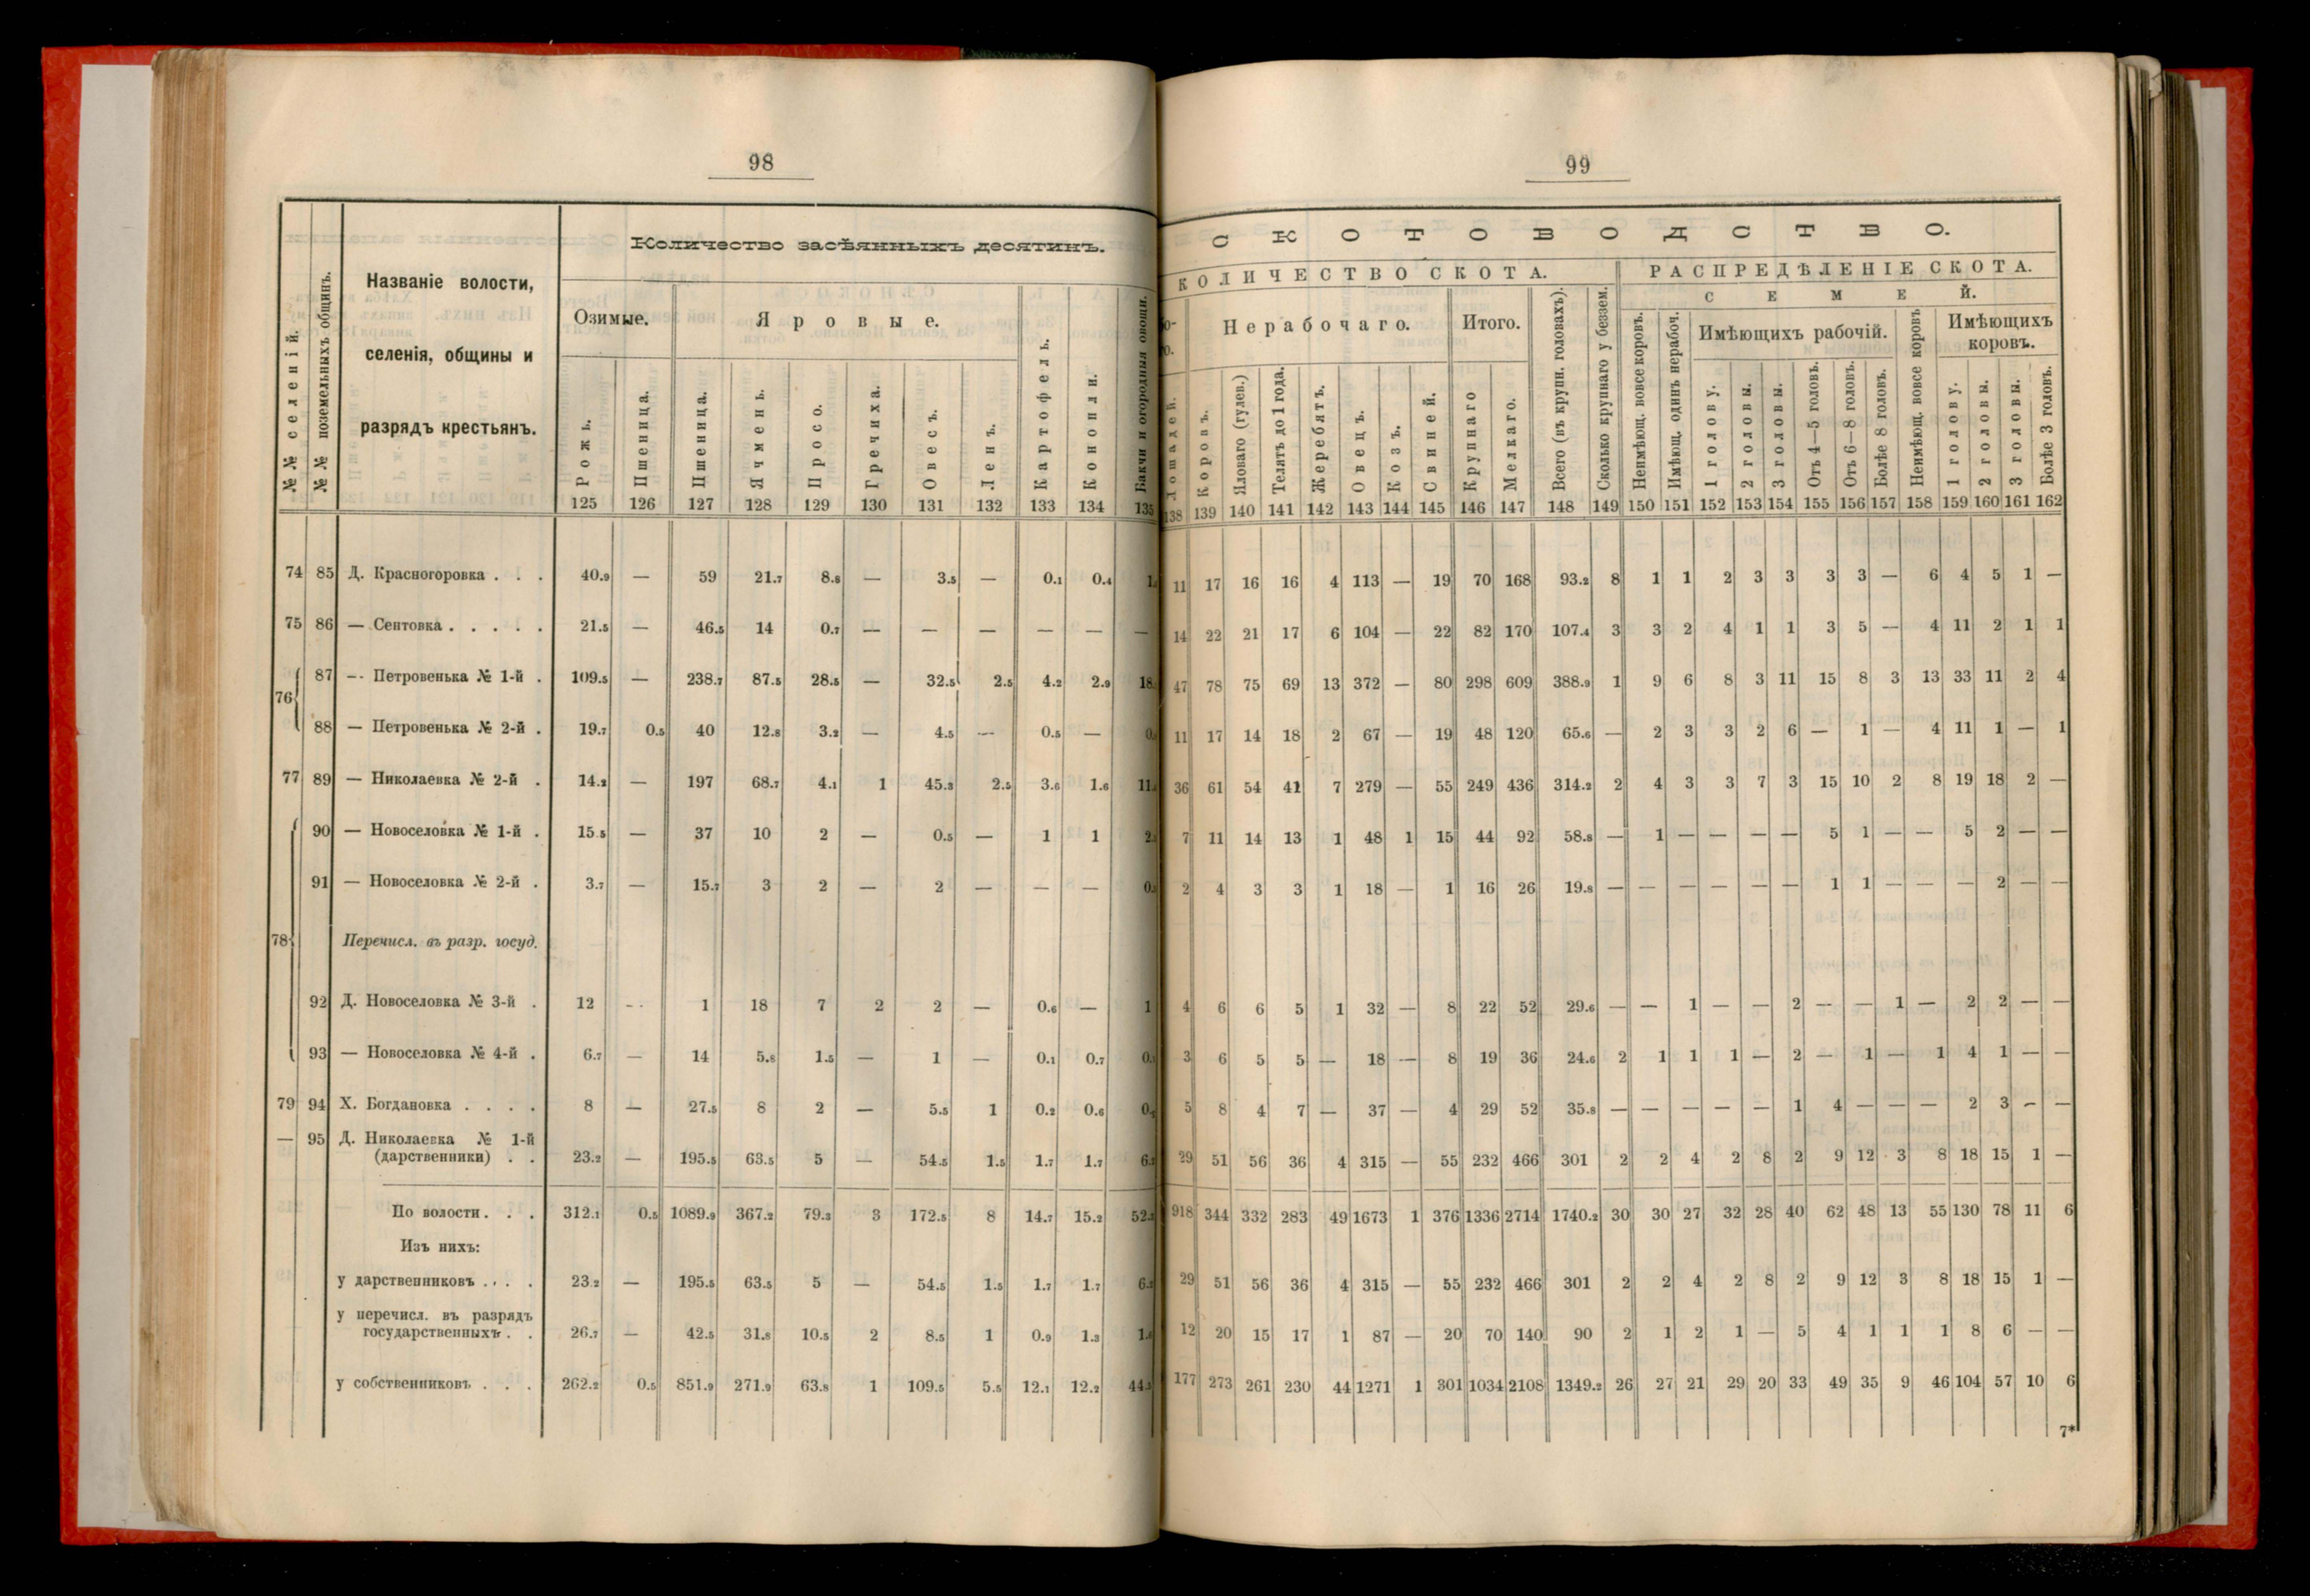 98
№№ селеній.
№№ поземельныхъ общинъ.
Названіе волости,
селенія, общины и
разрядъ крестьянъ.
Количество засѣянныхъ десятинъ.
Озимые.
Яровые.
Рожь.
Пшеница.
Пшеница.
Ячмень.
Просо.
Гречиха.
Овесъ.
Ленъ.
Картофель.
Конопли.
Бакчи и огородныя овощи.
125 126 127 128 129 130 131 132 133 134 135
74 85 Д. Красногоровка . . . 40.9 — 59 21.7 8.8 — 3.5 — 0.1 0.4
75 86 — Сентовка . . . . . 21.5 — 46.5 14 0.7 — — — — — —
76 87 — Петровенька № 1-й . 109.5 — 238.7 87.5 28.5 — 32.5 2.5 4.2 2.9 18.
88 — Петровенька № 2-й . 19.7 0.5 40 12.8 3.2 — 4.5 — 0.5 — 0.
77 89 — Николаевка № 2-й . 14.2 — 197 68.7 4.1 1 45.3 2.5 3.6 1.6 11.
78 90 — Новоселовка № 1-й . 15.5 — 37 10 2 — 0.5 — 1 1 2.
91 — Новоселовка № 2-й . 3.7 — 15.7 3 2 — 2 — — — 0.
Перечисл. въ разр. госуд.
92 Д. Новоселовка № 3-й . 12 — 1 18 7 2 2 — 0.6 — 1
93 — Новоселовка № 4-й . 6.7 — 14 5.8 1.5 — 1 — 0.1 0.7 0.
79 94 Х. Богдановка . . . . 8 — 27.5 8 2 — 5.5 1 0.2 0.6 0.
— 95 Д. Николаевка № 1-й
(дарственники) . . 23.2 — 195.5 63.5 5 — 54.5 1.5 1.7 1.7 6.
По волости . . . 312.1 0.5 1089.9 367.2 79.3 3 172.5 8 14.7 15.2 52.
Изъ нихъ:
у дарственниковъ . . . . 23.2 — 195.5 63.5 5 — 54.5 1.5 1.7 1.7 6.
у перечисл. въ разрядъ
государственныхъ . . 26.7 — 42.5 31.8 10.5 2 8.5 1 0.9 1.3 1.
у собственниковъ . . . 262.2 0.5 851.9 271.9 63.8 1 109.5 5.5 12.1 12.2 44.
99
СКОТОВОДСТВО.
КОЛИЧЕСТВО СКОТА.
РАСПРЕДѢЛЕНІЕ СКОТА.
СЕМЕЙ.
Нерабочаго.
Итого.
Имѣющихъ рабочій.
Имѣющихъ
коровъ.
Лошадей.
Коровъ.
Яловаго (гулев.)
Телятъ до 1 года.
Жеребятъ.
Овецъ.
Козъ.
Свиней.
Крупнаго
Мелкаго.
Всего (въ крупн. головахъ).
Сколько крупнаго у беззем.
Неимѣющ. вовсе коровъ.
Имѣющ. одинъ нерабоч.
1 голову.
2 головы.
3 головы.
Отъ 4—5 головъ.
Отъ 6—8 головъ.
Болѣе 8 головъ.
Неимѣющ. вовсе коровъ
1 голову.
2 головы.
3 головы.
Болѣе 3 головъ.
138 139 140 141 142 143 144 145 146 147 148 149 150 151 152 153 154 155 156 157 158 159 160 161 162
11 17 16 16 4 113 — 19 70 168 93.2 8 1 1 2 3 3 3 3 — 6 4 5 1 —
14 22 21 17 6 104 — 22 82 170 107.4 3 3 2 4 1 1 3 5 — 4 11 2 1 1
47 78 75 69 13 372 — 80 298 609 388.9 1 9 6 8 3 11 15 8 3 13 33 11 2 4
11 17 14 18 2 67 — 19 48 120 65.6 — 2 3 3 2 6 — 1 — 4 11 1 — 1
36 61 54 41 7 279 — 55 249 436 314.2 2 4 3 3 7 3 15 10 2 8 19 18 2 —
7 11 14 13 1 48 1 15 44 92 58.8 — 1 — — — — 5 1 — — 5 2 — —
2 4 3 3 1 18 — 1 16 26 19.8 — — — — — — 1 1 — — — 2 — —
4 6 6 5 1 32 — 8 22 52 29.6 — — 1 — — 2 — — 1 — 2 2 — —
3 6 5 5 — 18 — 8 19 36 24.6 2 1 1 1 — 2 — 1 — 1 4 1 — —
5 8 4 7 — 37 — 4 29 52 35.8 — — — — — 1 4 — — — 2 3 — —
29 51 56 36 4 315 — 55 232 466 301 2 2 4 2 8 2 9 12 3 8 18 15 1 —
918 344 332 283 49 1673 1 376 1336 2714 1740.2 30 30 27 32 28 40 62 48 13 55 130 78 11 6
29 51 56 36 4 315 — 55 232 466 301 2 2 4 2 8 2 9 12 3 8 18 15 1 —
12 20 15 17 1 87 — 20 70 140 90 2 1 2 1 — 5 4 1 1 1 8 6 — —
177 273 261 230 44 1271 1 301 1034 2108 1349.2 26 27 21 29 20 33 49 35 9 46 104 57 10 6
7*